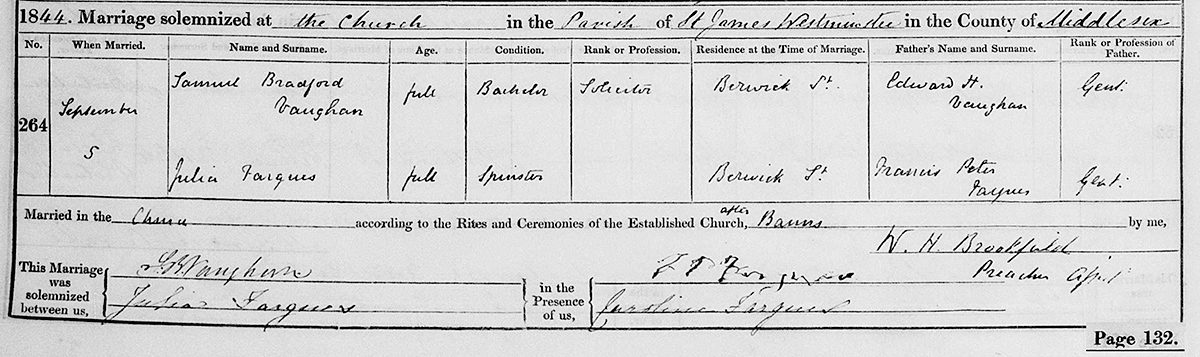 1844. Marriage solemnized at the Church in the Parish of St James Westminster in the County of Middlesex
No. When Married. Name and Surname. Age. Condition. Rank or Profession. Residence at the Time of Marriage. Father's Name and Surname. Rank or Profession of Father.
264 September 5
Samuel Bradford Vaughan full Bachelor Solicitor Berwick St. Edward H. Vaughan Gent.
Julia Farques full Spinster Berwick St Francis Peter Farques Gent.
Married in the Church according to the Rites and Ceremonies of the Established Church, after Banns by me,
W. H. Brookfield
Preacher
This Marriage was solemnized between us,
S B Vaughan
Julia Farques
in the Presence of us,
F P Farques
Caroline Farques
Page 132.